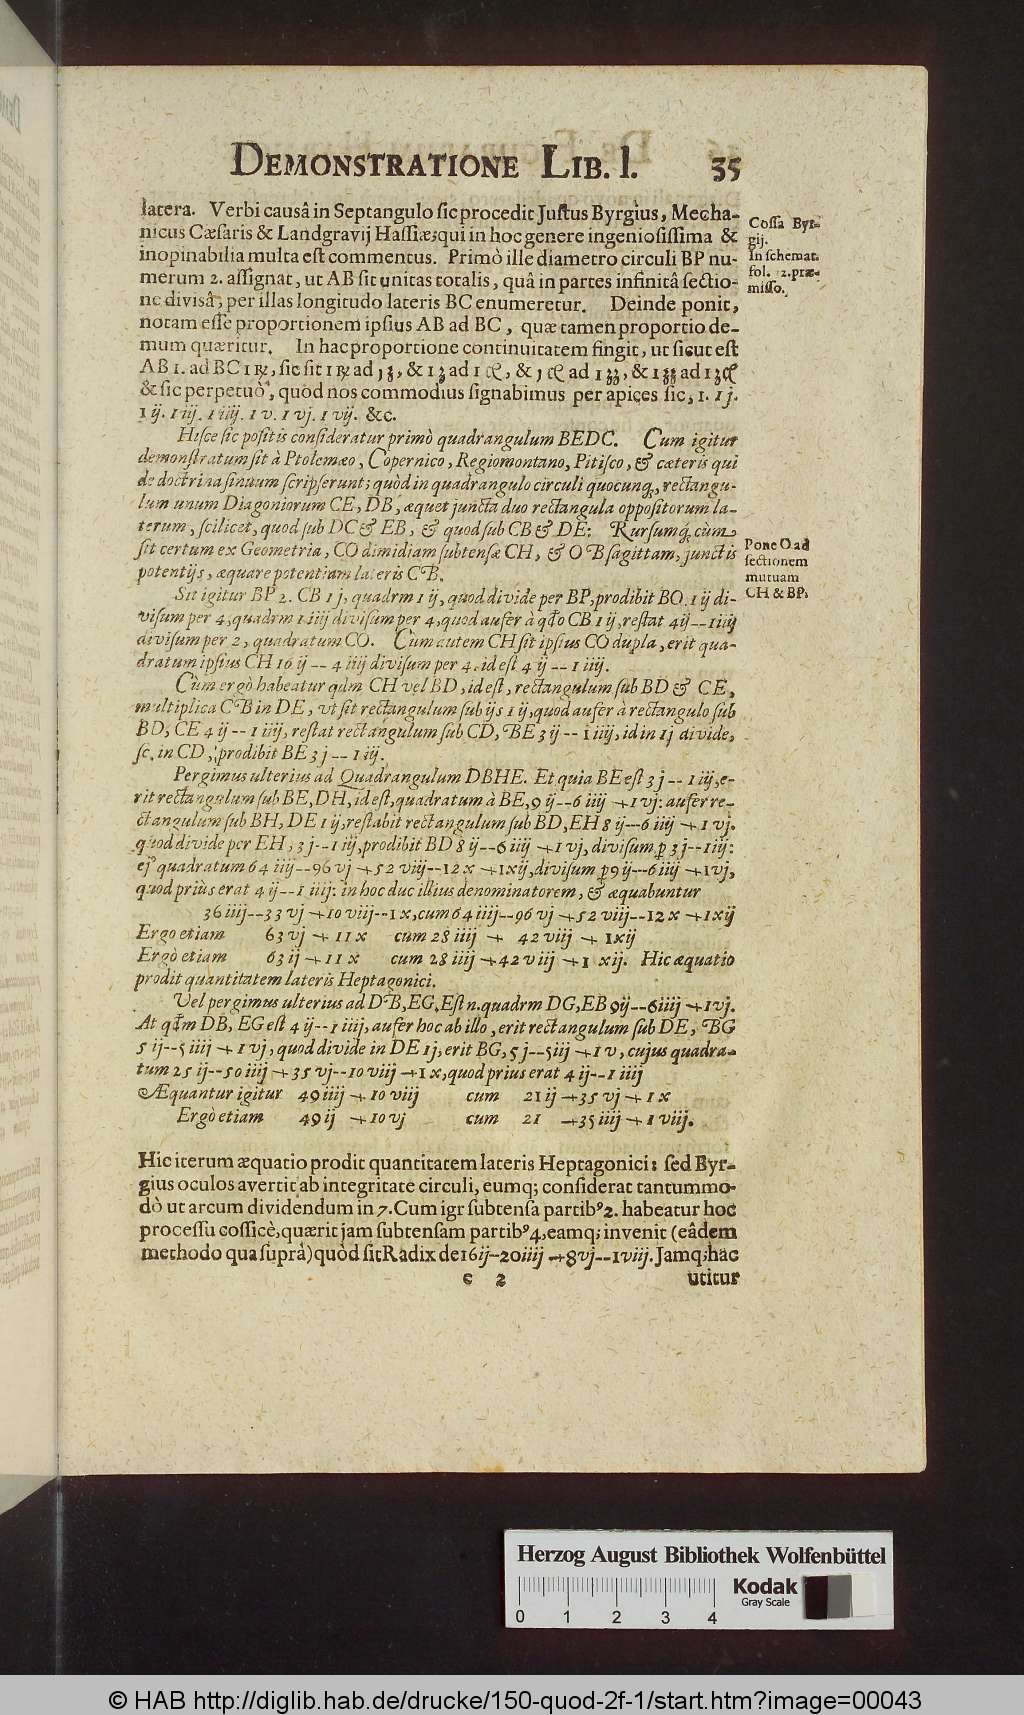 DEMONSTRATIONE LIB. I. 35
latera. Verbi causâ in Septangulo sic procedit Justus Byrgius, Mecha-
nicus Cæsaris & Landgravij Hassiæ; qui in hoc genere ingeniosissima &
inopinabilia multa est commentus. Primò ille diametro circuli BP nu-
merum 2. assignat, ut AB sit unitas totalis, quâ in partes infinitâ sectio-
ne divisâ, per illas longitudo lateris BC enumeretur. Deinde ponit,
notam esse proportionem ipsius AB ad BC, quæ tamen proportio de-
mum quæritur. In hac proportione continuitatem fingit, ut sicut est
AB 1. ad BC 1 ꝶ, sic sit 1 ꝶ ad 1 ʒ, & 1 ʒ ad 1 ꝯ, & 1 ꝯ ad 1 ʒʒ, & 1 ʒʒ ad 1 ʒꝯ
& sic perpetuò, quod nos commodius signabimus per apices sic, 1. 1j.
1 ij. 1 iij. 1 iiij. 1 v. 1 vj. 1 vij. &c.
Hisce sic positis consideratur primò quadrangulum BEDC. Cum igitur
demonstratum sit à Ptolemæo, Copernico, Regiomontano, Pitisco, & cæteris qui
de doctrina sinuum scripserunt; quòd in quadrangulo circuli quocunq́, rectangu-
lum unum Diagoniorum CE, DB, æquet juncta duo rectangula oppositorum la-
terum, scilicet, quod sub DC & EB, & quod sub CB & DE: Rursumq́, cùm
sit certum ex Geometria, CO dimidiam subtensæ CH, & OB sagittam, junctis
potentijs, æquare potentiam lateris CB.
Sit igitur BP 2. CB 1 j, quadrm 1 ij, quod divide per BP, prodibit BO. 1 ij di-
visum per 4, quadrm 1 iiij divisum per 4, quod aufer à qđo CB 1 ij, restat 4ij -- 1 iiij
divisum per 2, quadratum CO. Cùm autem CH sit ipsius CO dupla, erit qua-
dratum ipsius CH 16 ij -- 4 iiij divisum per 4. id est 4 ij -- 1 iiij.
Cùm ergò habeatur qdm CH vel BD, id est, rectangulum sub BD & CE,
multiplica CB in DE, ut sit rectangulum sub ijs 1 ij, quod aufer à rectangulo sub
BD, CE 4 ij -- 1 iiij, restat rectangulum sub CD, BE 3 ij -- 1 iiij, id in 1j divide,
sc. in CD, prodibit BE 3 j -- 1 iij.
Pergimus ulterius ad Quadrangulum DBHE. Et quia BE est 3 j -- 1 iij, e-
rit rectangulum sub BE, DH, id est, quadratum à BE, 9 ij -- 6 iiij + 1 vj: aufer re-
ctangulum sub BH, DE 1 ij, restabit rectangulum sub BD, EH 8 ij -- 6 iiij + 1 vj.
quod divide per EH, 3 j -- 1 iij, prodibit BD 8 ij -- 6 iiij + 1 vj, divisum p 3 j -- 1 iij:
ej⁹ quadratum 64 iiij -- 96 vj + 52 viij -- 12 x + 1 xij, divisum p 9 ij -- 6 iiij + 1 vj,
quod priùs erat 4 ij -- 1 iiij: in hoc duc illius denominatorem, & æquabuntur
36 iiij -- 33 vj + 10 viij -- 1 x, cum 64 iiij -- 96 vj + 52 viij -- 12 x + 1 xij
Ergo etiam 63 vj + 11 x cum 28 iiij + 42 viij + 1 xij
Ergò etiam 63 ij + 11 x cum 28 iiij + 42 viij + 1 xij. Hic æquatio
prodit quantitatem lateris Heptagonici.
Vel pergimus ulterius ad DB, EG. Est n. quadrm DG, EB 9ij -- 6iiij + 1 vj.
At qđm DB, EG est 4 ij -- 1 iiij, aufer hoc ab illo, erit rectangulum sub DE, BG
5 ij -- 5 iiij + 1 vj, quod divide in DE 1j, erit BG, 5 j -- 5iij + 1 v, cujus quadra-
tum 25 ij -- 50 iiij + 35 vj -- 10 viij + 1 x, quod prius erat 4 ij -- 1 iiij
Æquantur igitur 49 iiij + 10 viij cum 21 ij + 35 vj + 1 x
Ergò etiam 49 ij + 10 vj cum 21 + 35 iiij + 1 viij.
Hic iterum æquatio prodit quantitatem lateris Heptagonici: sed Byr-
gius oculos avertit ab integritate circuli, eumq; considerat tantummo-
dò ut arcum dividendum in 7. Cum igr subtensa partib⁹ 2. habeatur hoc
processu cossicè, quærit jam subtensam partib⁹ 4, eamq; invenit (eâdem
methodo qua suprà) quòd sit Radix de 16 ij -- 20 iiij + 8 vj -- 1 viij. Jamq; hac
e 2 utitur
Cossa Byr-
gij.
In schemat.
fol. 12. præ-
misso.
Pone O ad
sectionem
mutuam
CH & BP.
Herzog August Bibliothek Wolfenbüttel
0 1 2 3 4
Kodak
Gray Scale
© HAB http://diglib.hab.de/drucke/150-quod-2f-1/start.htm?image=00043